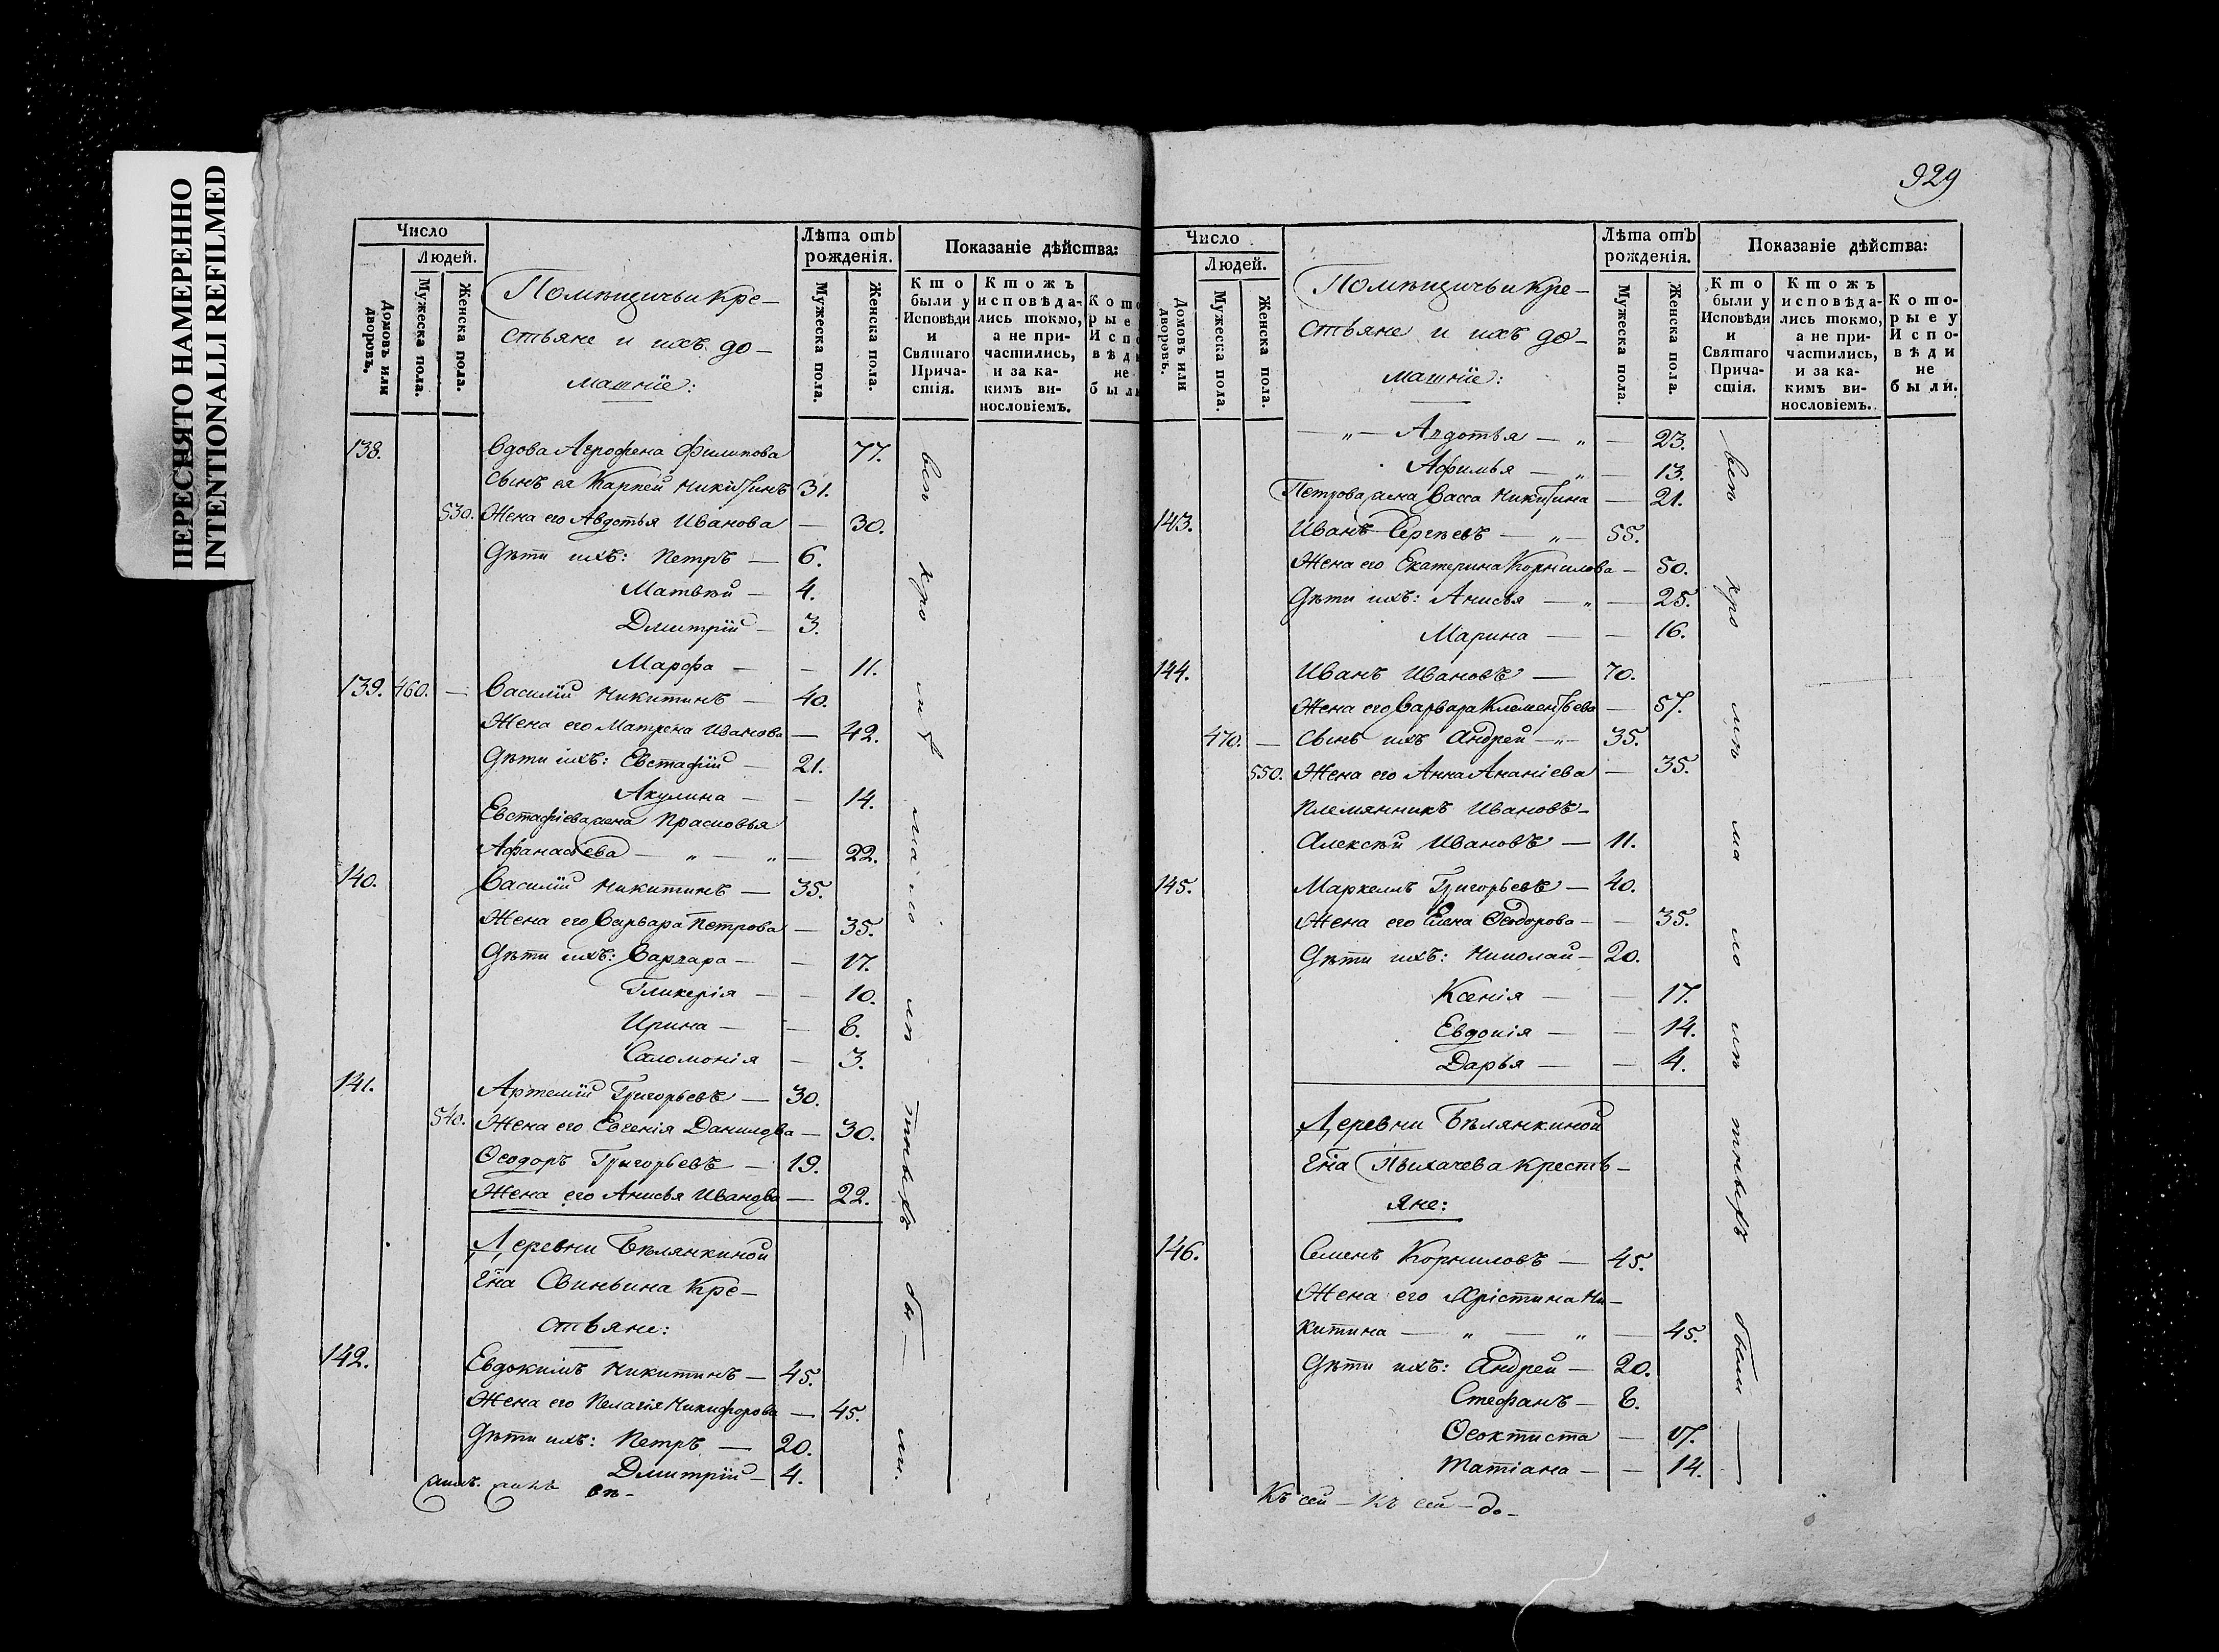 ПЕРЕСНЯТО НАМЕРЕННО
INTENTIONALLI REFILMED
Число
Людей.
Домовъ или дворовъ.
Мужеска пола.
Женска пола.
Помѣщичьи Кре-
стьяне и ихъ до-
машнïе:
Лѣта отъ рожденія.
Мужеска пола.
Женска пола.
Показаніе дѣйства:
Кто были у Исповѣди и Святаго Причастія.
Ктожъ исповѣдались токмо, а не причастились, и за какимъ винословіемъ.
138. Вдова Агрофена Филипова 77.
Сынъ ея Карпей Никитинъ 31.
530. Жена его Авдотья Иванова — 30.
Дѣти ихъ: Петръ — 6.
Матвѣй — 4.
Дмитрïй — 3.
Марфа — — 11.
139. 460. — Василïй Никитинъ — 40.
Жена его Матрена Иванова — 42.
Дѣти ихъ: Евстафïй — 21.
Акулина — — 14.
Евстафïева жена Прасковья
Афанасьева — „ — „ — 22.
140. Василïй Никитинъ — 35.
Жена его Варвара Петрова — 35.
Дѣти ихъ: Варвара — — 17.
Гликерія — — 10.
Ирина — — 8.
Саломонія — 3.
141. Артемïй Григорьевъ — 30.
540. Жена его Евгенія Данилова — 30.
Ѳеодоръ Григорьевъ — 19.
Жена его Анисья Иванова — 22.
Деревни Бѣлянкиной
Г̃на Свиньина Кре-
стьяне:
142. Евдокимъ Никитинъ — 45.
Жена его Пелагія Никифорова — 45.
Дѣти ихъ: Петръ — 20.
Дмитрïй — 4.
929
Число
Людей.
Домовъ или дворовъ.
Мужеска пола.
Женска пола.
Помѣщичьи Кре-
стьяне и ихъ до-
машнïе:
Лѣта отъ рожденія.
Мужеска пола.
Женска пола.
Показаніе дѣйства:
Кто были у Исповѣди и Святаго Причастія.
Ктожъ исповѣдались токмо, а не причастились, и за какимъ винословіемъ.
Которые у Исповѣди не были.
— „ — Авдотья — „ — 23.
Афимья — „ — 13.
Петрова жена Васса Никитина — 21.
143. Иванъ Сергѣевъ — „ — 55.
Жена его Екатерина Корнилова — 50.
Дѣти ихъ: Анисья — „ — 25.
Марина — — 16.
144. Иванъ Ивановъ — 70.
Жена его Варвара Климентьева — 57.
470. — Сынъ ихъ Андрей — „ — 35.
550. Жена его Анна Ананіева — 35.
Племянникъ Ивановъ —
Алексѣй Ивановъ — 11.
145. Маркеллъ Григорьевъ — 40.
Жена его Елена Ѳеодорова — — 35.
Дѣти ихъ: Николай — 20.
Ксенія — — 17.
Евдокія — — 14.
Дарья — — 4.
Деревни Бѣлянкиной
Г̃на Пыхачева Кресть-
яне:
146. Семенъ Корниловъ — 45.
Жена его Хрістина Ни-
китина — „ — „ — 45.
Дѣти ихъ: Андрей — 20.
Стефанъ — 8.
Ѳеоктиста — 17.
Татіана — — 14.
Къ сей — къ сей — до-